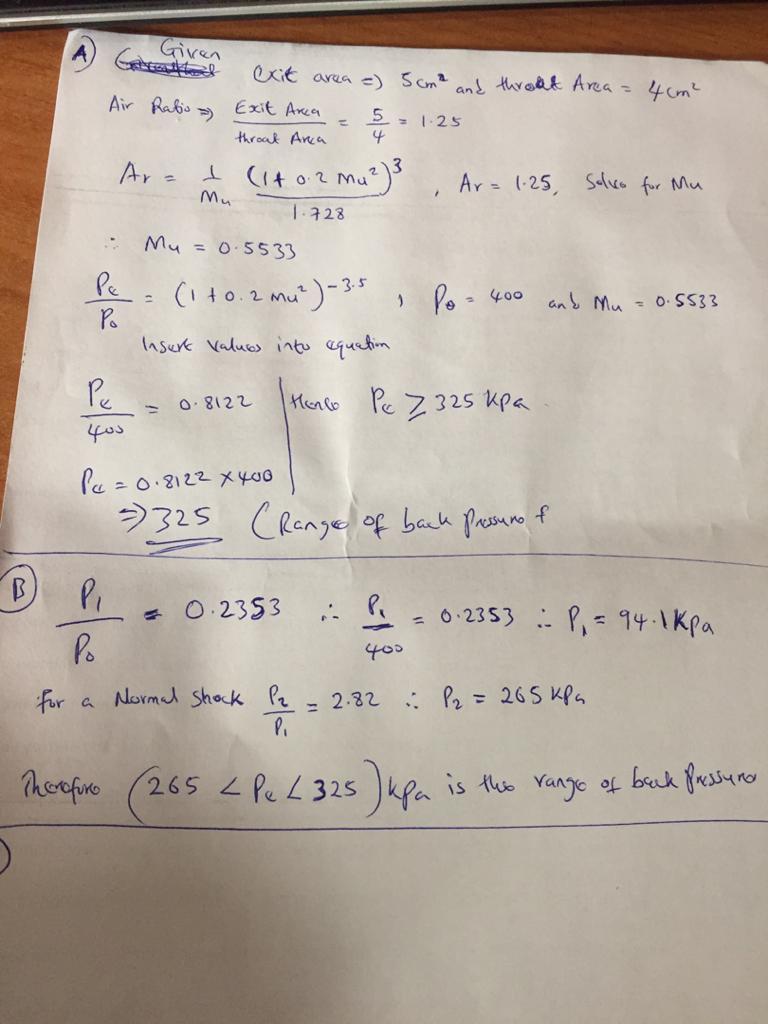 A) Given
Exit area => 5cm² and throat Area = 4cm²
Air Ratio => Exit Area / throat Area = 5/4 = 1.25
Ar = 1/Mu (1+0.2 Mu²)³ / 1.728 , Ar = 1.25, Solve for Mu
∴ Mu = 0.5533
Pe/Po = (1+0.2 Mu²)^-3.5 , Po = 400 and Mu = 0.5533
Insert values into equation
Pe/400 = 0.8122 | Hence Pe ≥ 325 kpa
Pe = 0.8122 x 400
=> 325 (Range of back Pressure f
B) P1/Po = 0.2353 ∴ P1/400 = 0.2353 ∴ P1 = 94.1 Kpa
for a Normal Shock P2/P1 = 2.82 ∴ P2 = 265 KPa
Therefore (265 < Pe < 325) kpa is the range of back Pressure